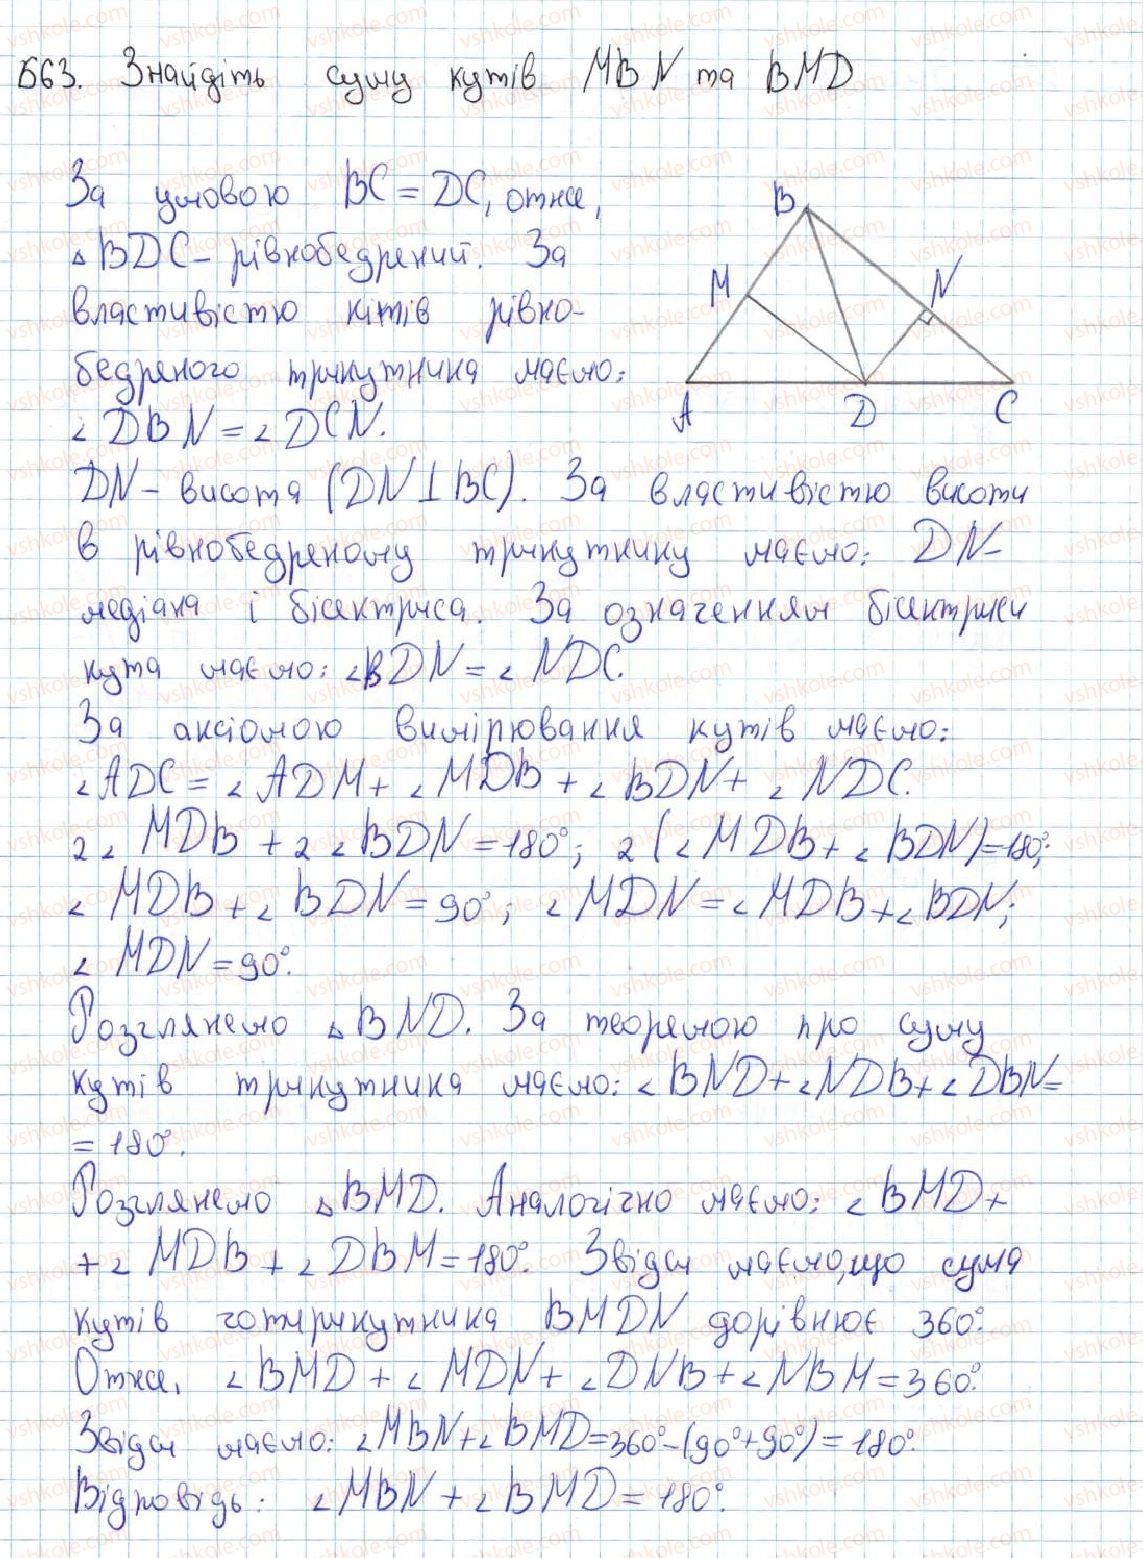 563. Знайдіть суму кутів MBN та BMD
За умовою BC = DC, отже,
△BDC – рівнобедрений. За
властивістю кітів рівно-
бедреного трикутника маємо:
∠DBN = ∠DCN.
B
M
N
A
D
C
DN – висота (DN⊥BC). За властивістю висоти
в рівнобедреному трикутнику маємо: DN –
медіана і бісектриса. За означенням бісектриси
кута маємо: ∠BDN = ∠NDC.
За аксіомою вимірювання кутів маємо:
∠ADC = ∠ADM + ∠MDB + ∠BDN + ∠NDC.
2∠MDB + 2∠BDN = 180°; 2(∠MDB + ∠BDN) = 180°;
∠MDB + ∠BDN = 90°; ∠MDN = ∠MDB + ∠BDN;
∠MDN = 90°.
Розглянемо △BND. За теоремою про суму
кутів трикутника маємо: ∠BND + ∠NDB + ∠DBN =
= 180°.
Розглянемо △BMD. Аналогічно маємо: ∠BMD +
+ ∠MDB + ∠DBM = 180°. Звідси маємо, що сума
кутів чотирикутника BMDN дорівнює 360°.
Отже, ∠BMD + ∠MDN + ∠DNB + ∠NBM = 360°.
Звідси маємо: ∠MBN + ∠BMD = 360° – (90° + 90°) = 180°.
Відповідь: ∠MBN + ∠BMD = 180°.